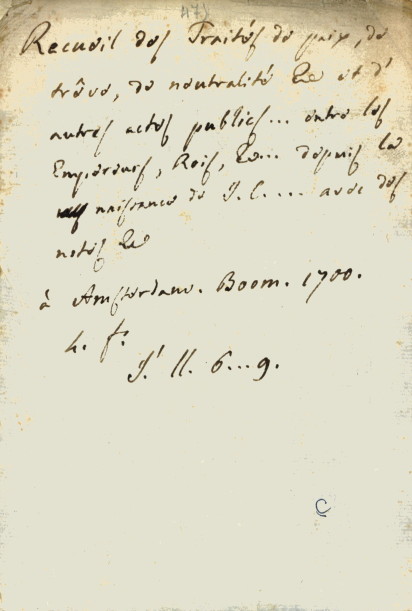 471
Recueil des Traités de paix, de
trêve, de neutralité &c et d'
autres actes publics... entre les
Empereurs, Rois, &c... depuis la
naissance de J. C. ... avec des
notes &c
à Amsterdam. Boom. 1700.
4. f.
J. II. 6...9.
C